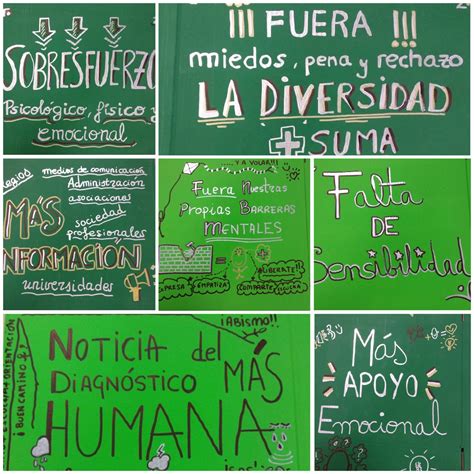 SOBRESFUERZO
Psicológico, físico y
emocional
¡¡¡ FUERA !!!
miedos, pena y rechazo
LA DIVERSIDAD
+ SUMA
medios de comunicación
Administración
asociaciones
sociedad
profesionales
MÁS
INFORMACIÓN
universidades
....Y A VOLAR!!!
FUERA NUESTRAS
PROPIAS BARRERAS
MENTALES
¡LIBERATE!!
EMPATIZA
COMPARTE
FALTA
DE
Sensibilidad
¡Abismo!!
NOTICIA del
DIAGNÓSTICO MÁS
HUMANA
ORIENTACIÓN
¡BUEN CAMINO!
MÁS
APOYO
Emocional